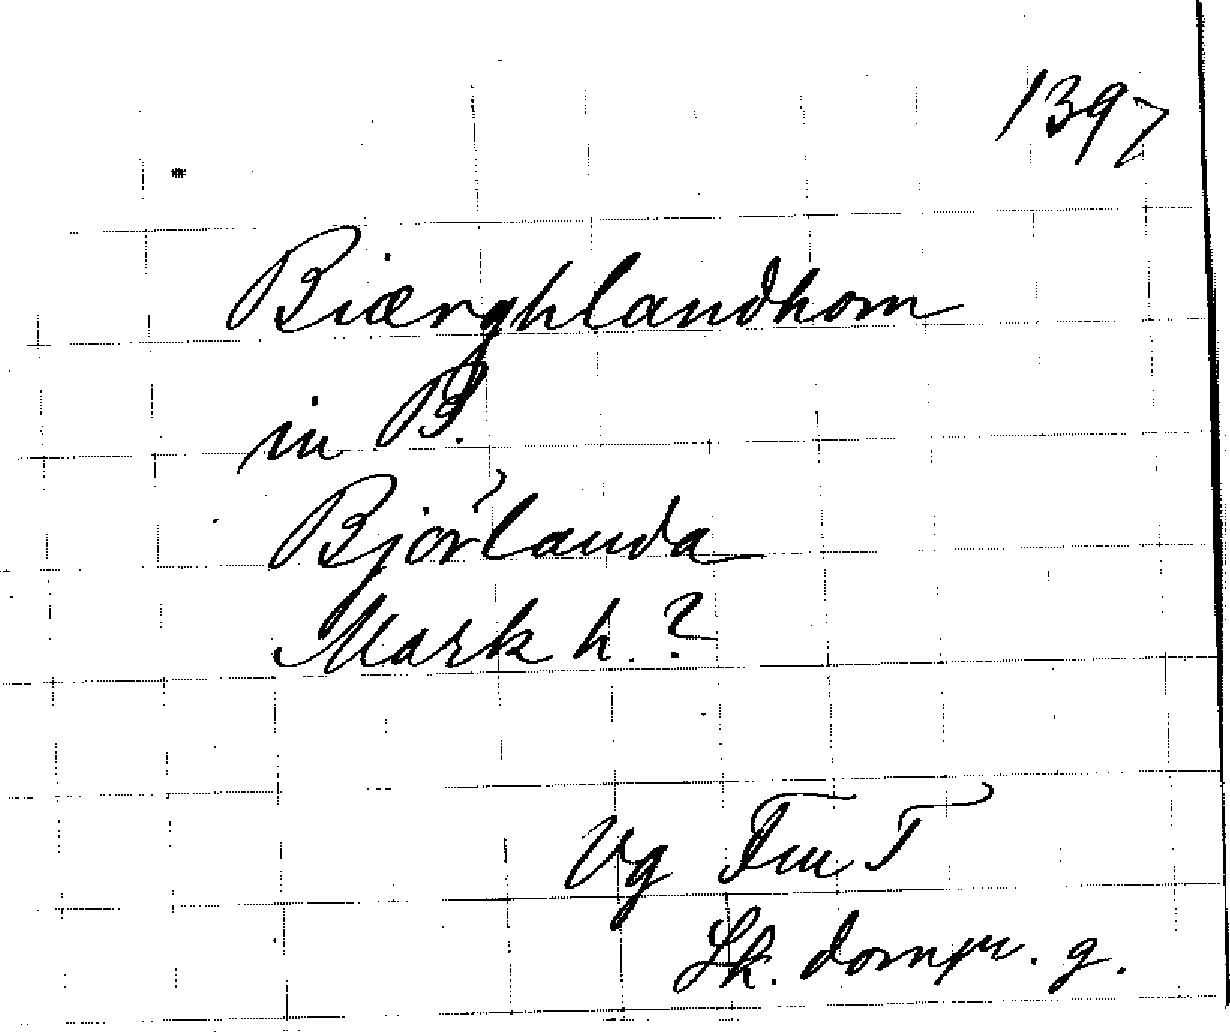 1397
Biærghlandhom
in B.
Bjórlanda
Mark h. ?
Vg Fm T
Sk. dompr. g.